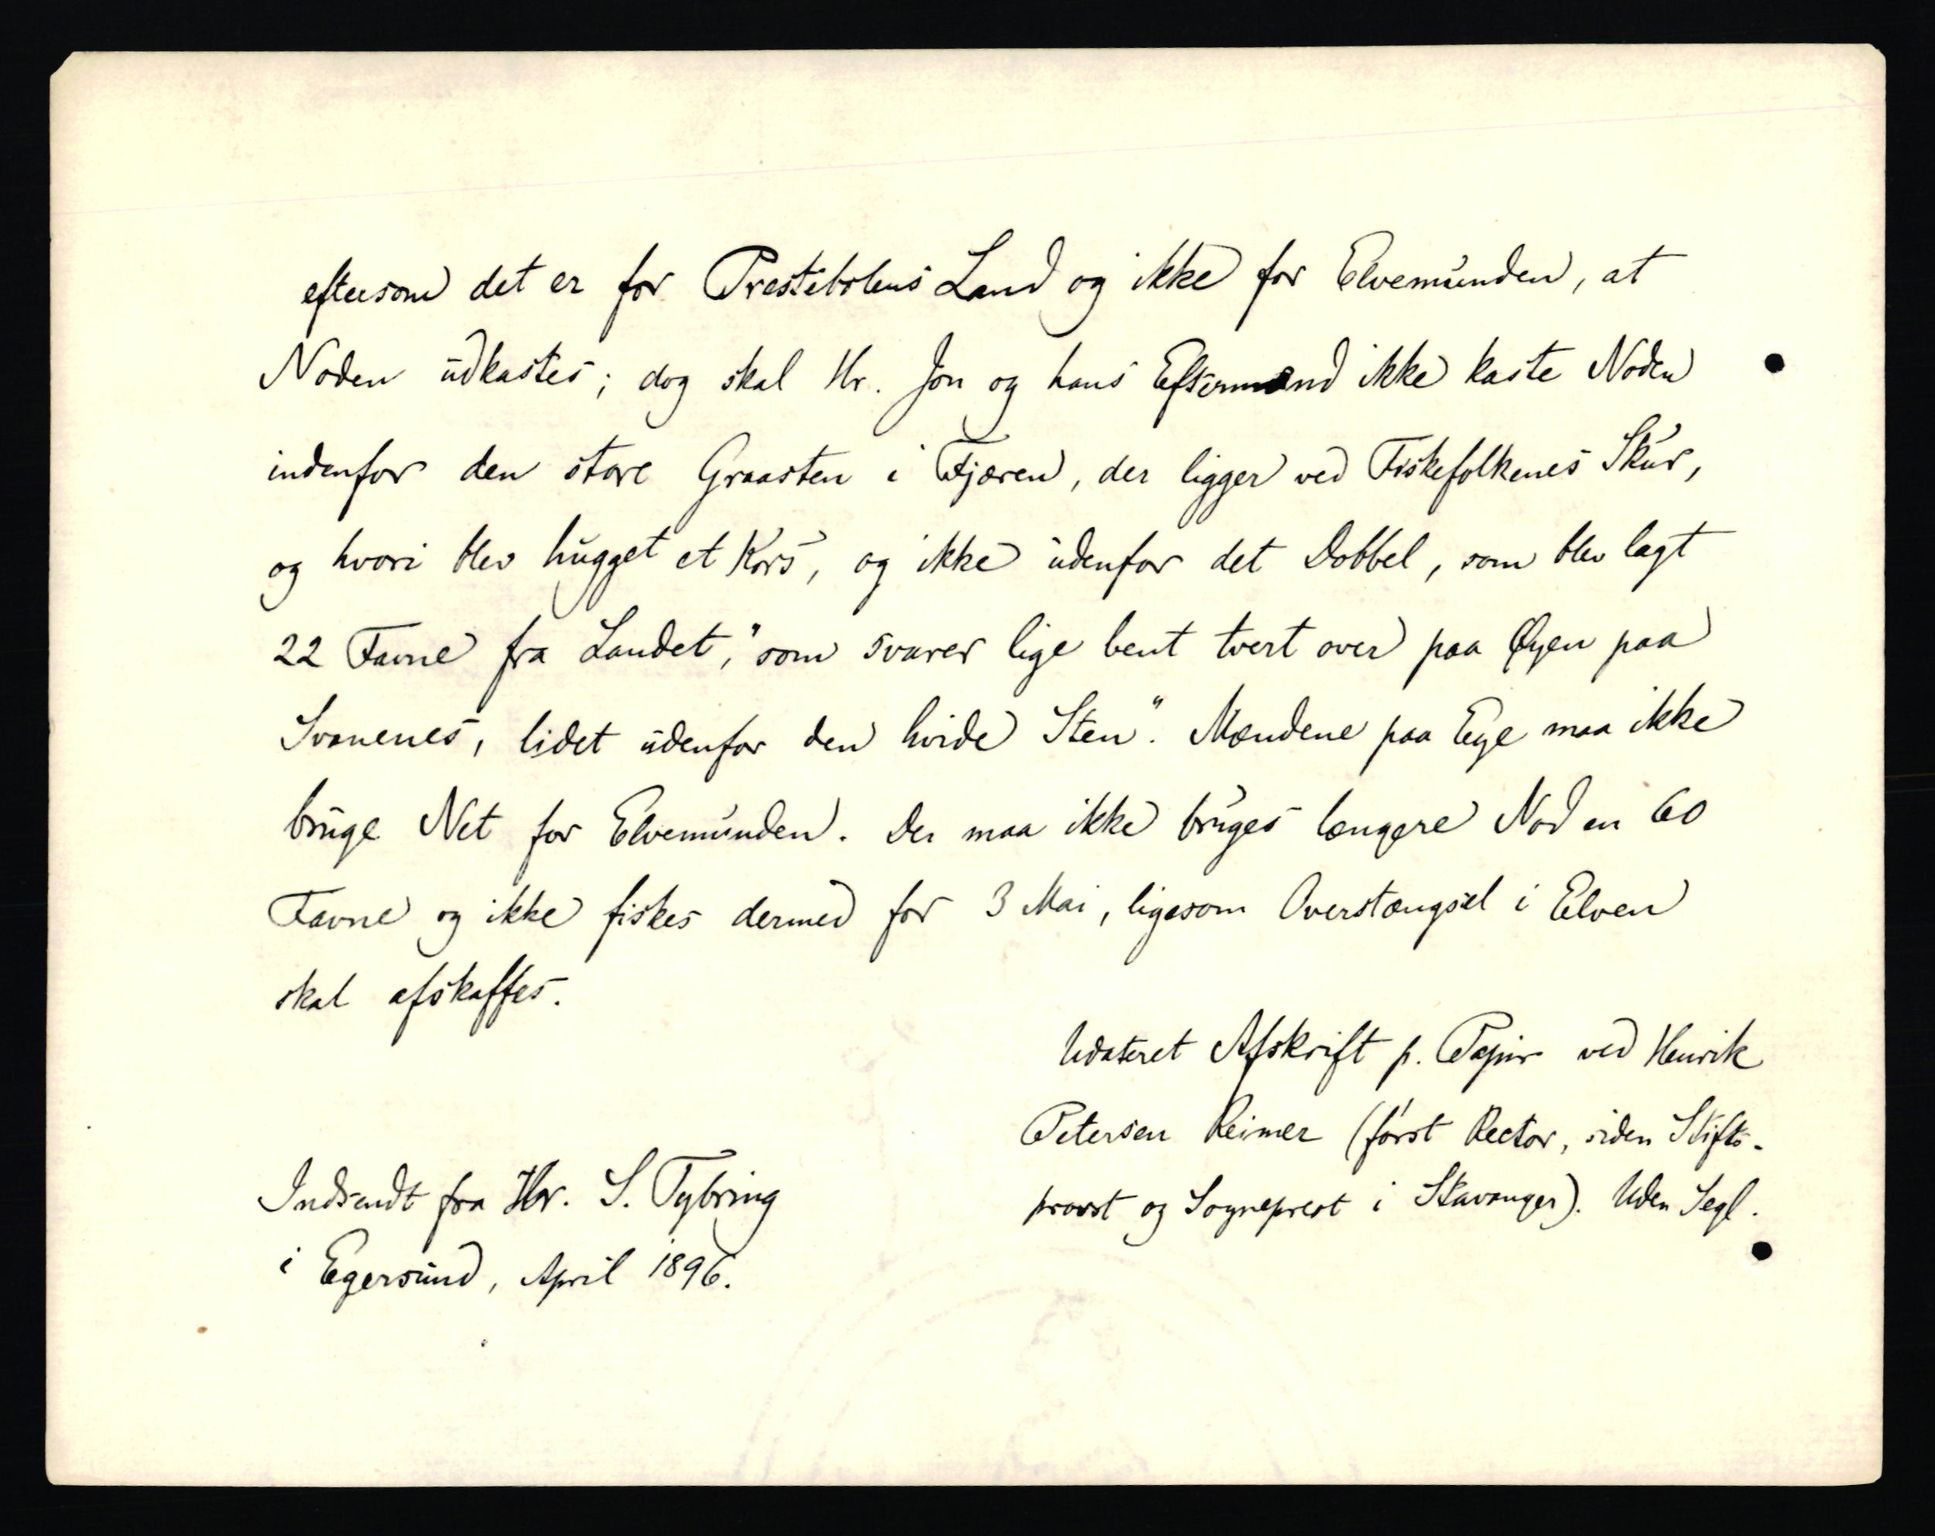 eftersom det er for Prestebolens Land og ikke for Elvemunden, at
Noden udkastes; dog skal Hr. Jon og hans Eftermænd ikke kaste Noden
indenfor den store Graasten i Fjæren, der ligger ved Fiskefolkenes Skur,
og hvori blev hugget et Kors, og ikke udenfor det Dobbel, som blev lagt
22 Favne fra Landet, "som svarer lige bent tvert over paa Øyen paa
Svanenes, lidet udenfor den hvide Sten". Mændene paa Eye maa ikke
bruge Net for Elvemunden. Der maa ikke bruges længere Nod en 60
Favne og ikke fiskes dermed for 3 Mai, ligesom Overstængsel i Elven
skal afskaffes.
Udateret Afskrift p. Papir ved Henrik
Petersen Reimer (først Rector, siden Stifts-
provst og Sogneprest i Stavanger). Uden Segl.
Indsendt fra Hr. S. Tybring
i Egersund, April 1896.